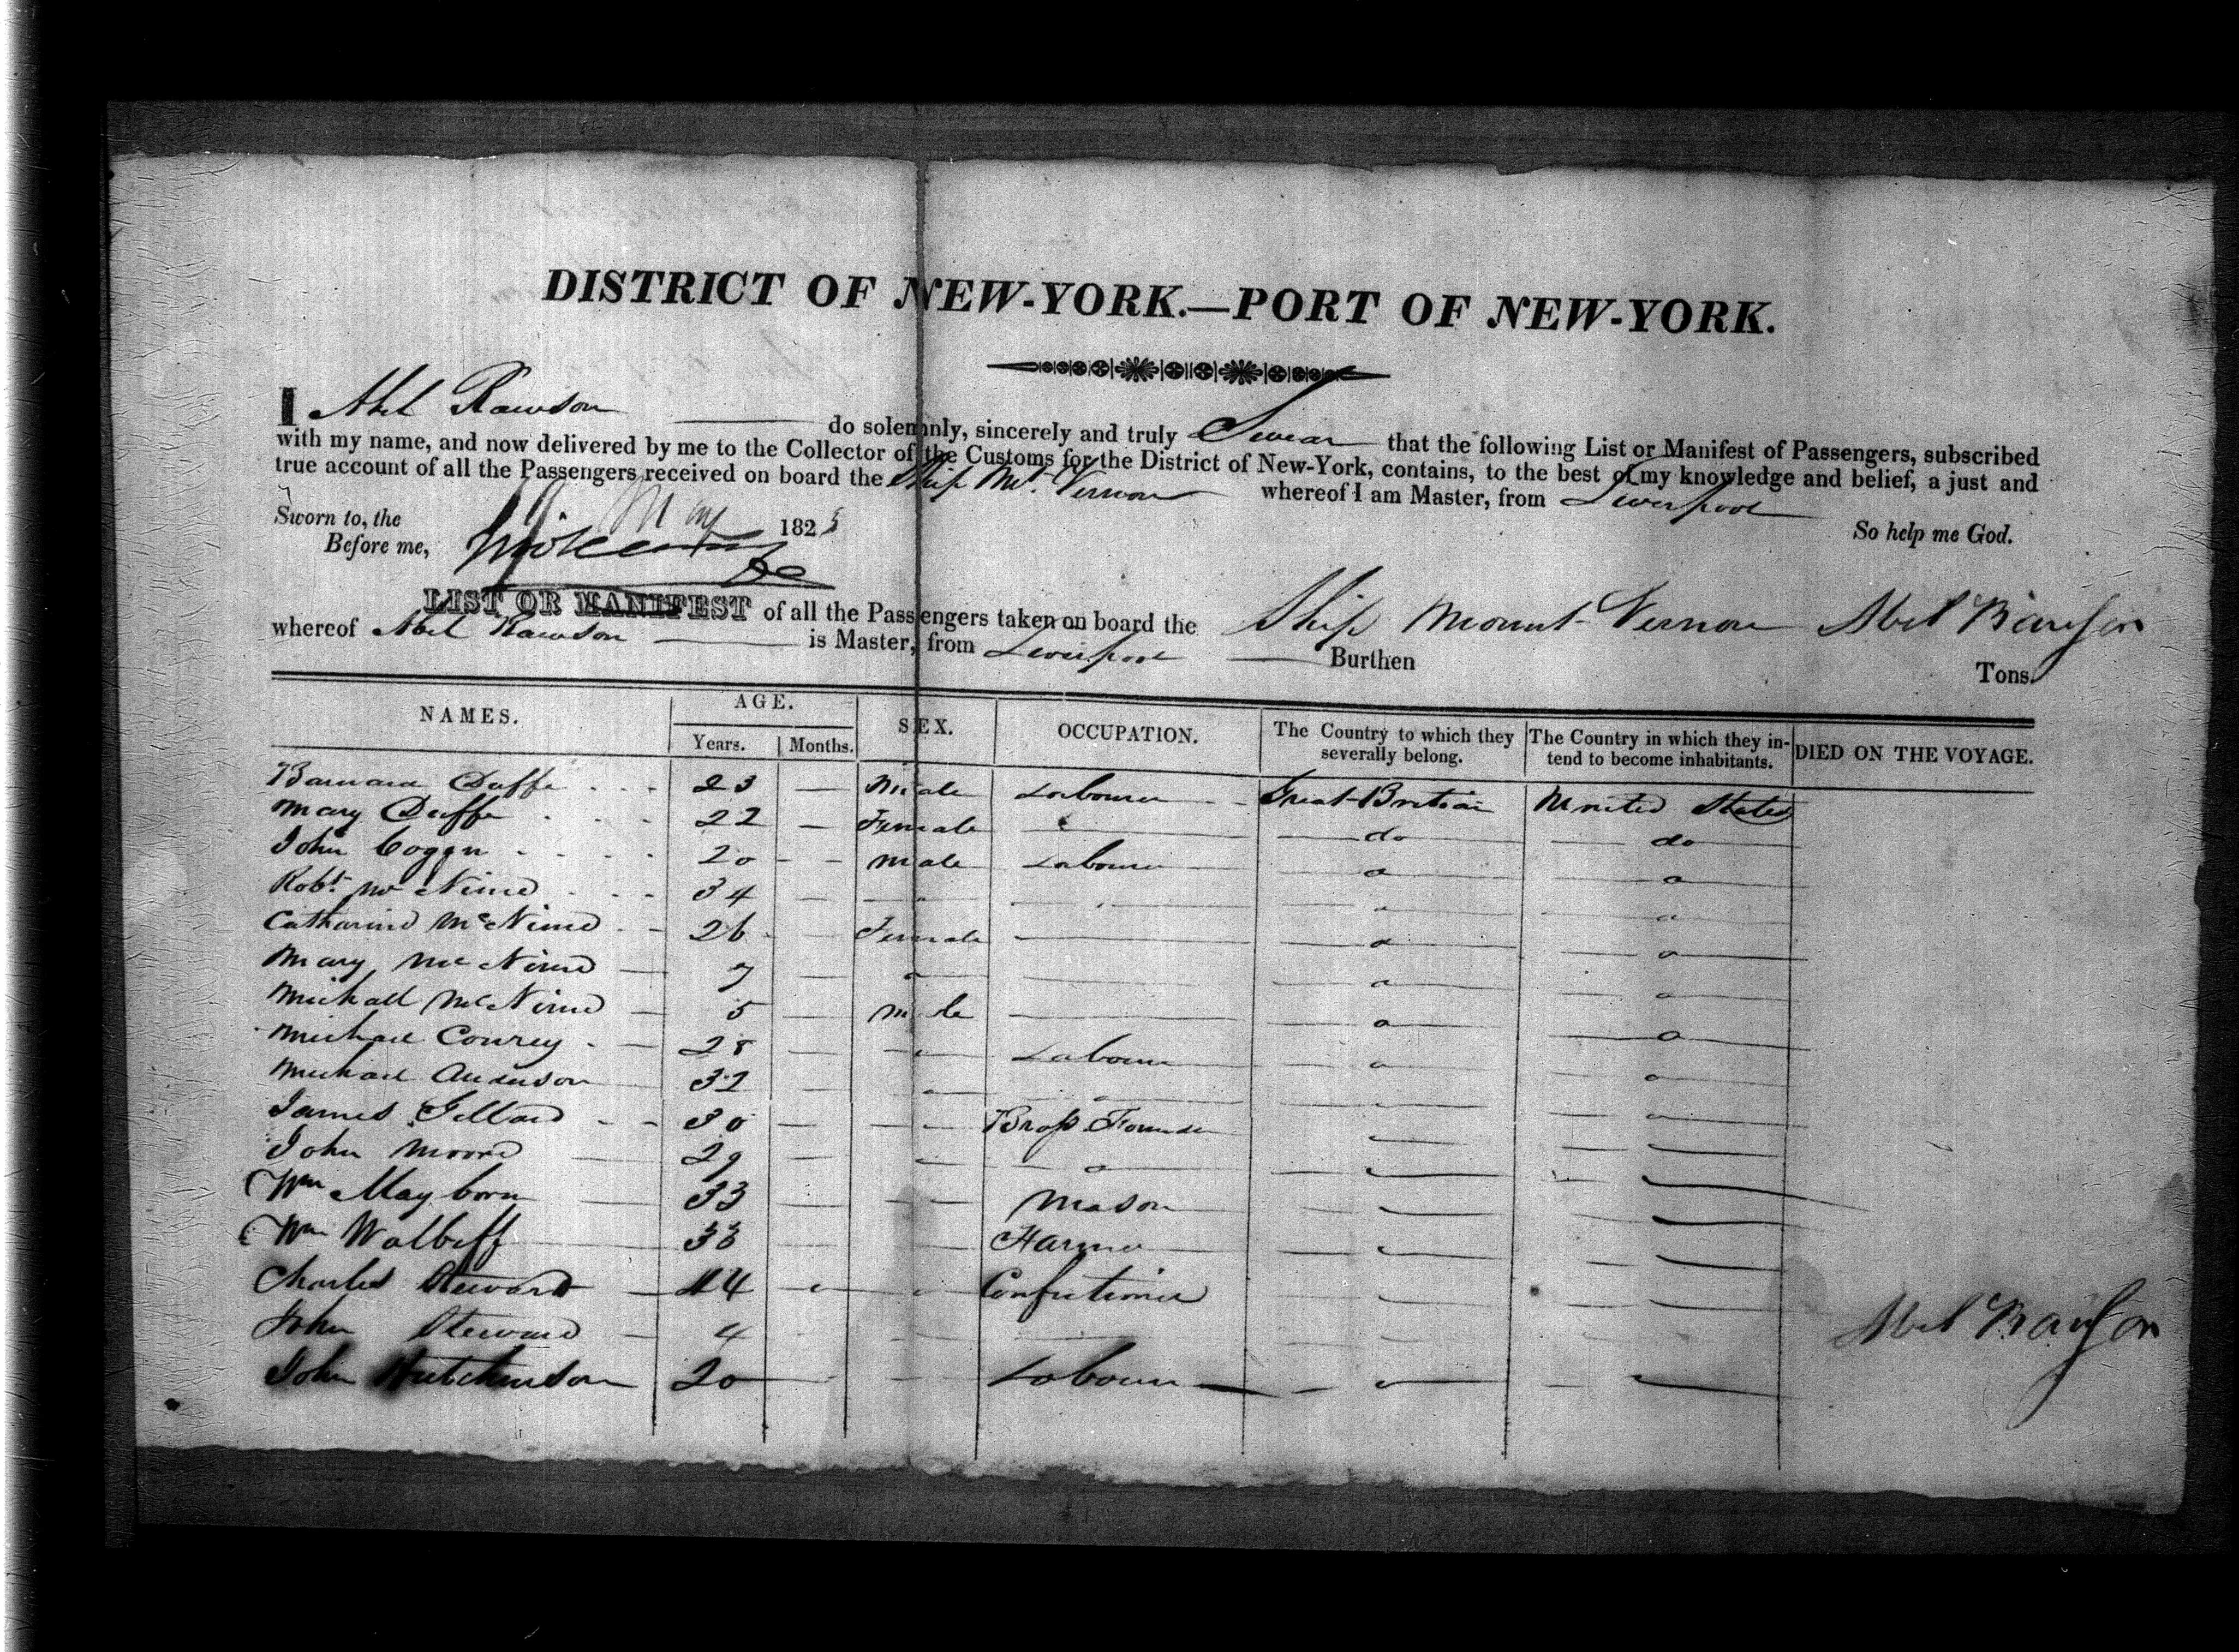 DISTRICT OF NEW-YORK.—PORT OF NEW-YORK.
I Abel Rawson do solemnly, sincerely and truly Swear that the following List or Manifest of Passengers, subscribed
with my name, and now delivered by me to the Collector of the Customs for the District of New-York, contains, to the best of my knowledge and belief, a just and
true account of all the Passengers received on board the Ship Mt. Vernon whereof I am Master, from Liverpool
So help me God.
Sworn to, the 19 May 1825
Before me,
LIST OR MANIFEST of all the Passengers taken on board the Ship Mount Vernon Abel Rawson
whereof Abel Rawson is Master, from Liverpool Burthen Tons.
NAMES. AGE. Years. Months. SEX. OCCUPATION. The Country to which they severally belong. The Country in which they intend to become inhabitants. DIED ON THE VOYAGE.
Barnard Duffe 23 — Male Labourer Great Britain United States
Mary Duffe 22 — Female — do do
John Coggn 20 - - male Labourer " "
Robt. Mc Nimed 34 — " " " "
Catharine McNimed 26 — Female — " "
Mary Mc Nimed 7 — " — " "
Michall McNimed 5 — male — " "
Michael Conrey 28 — " Labourer " "
Michael Anderson 32 — " " " "
James Gellard 30 — " Brass Founder " "
John Moore 29 — " " " "
Wm Mayborn 33 — " Mason " "
Wm Walbeff 33 — " Farmer " "
Charles Steward 44 — " Confectioner " "
John Steward 4 " "
John Hutchinson 20 — " Labourer " "
Abel Rawson